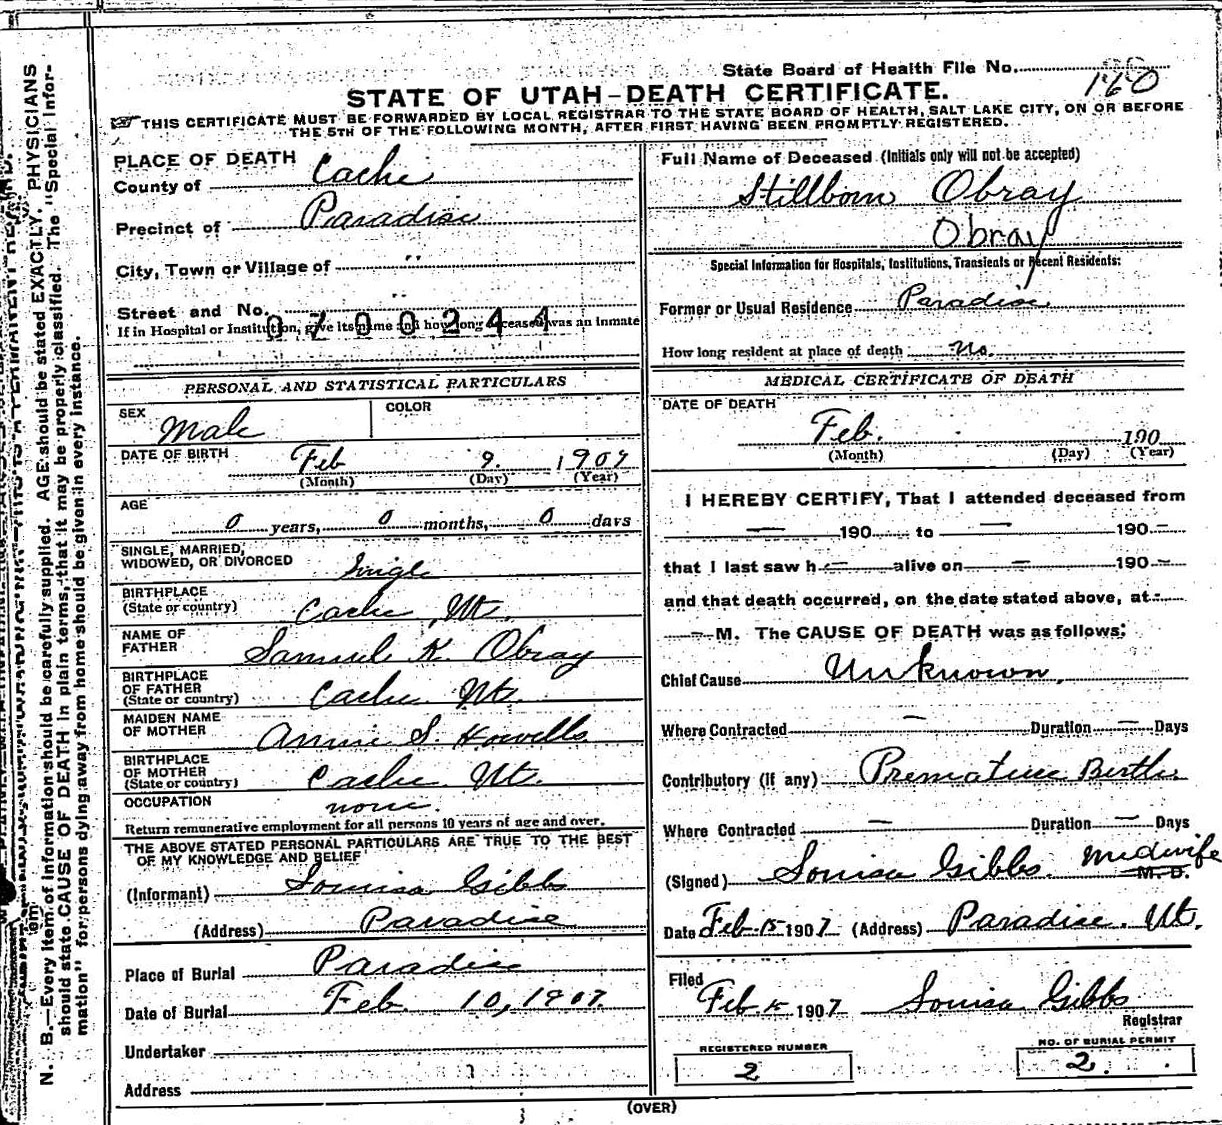 State Board of Health File No. 160
STATE OF UTAH-DEATH CERTIFICATE.
THIS CERTIFICATE MUST BE FORWARDED BY LOCAL REGISTRAR TO THE STATE BOARD OF HEALTH, SALT LAKE CITY, ON OR BEFORE
THE 5TH OF THE FOLLOWING MONTH, AFTER FIRST HAVING BEEN PROMPTLY REGISTERED.
PLACE OF DEATH
County of Cache
Precinct of Paradise
City, Town or Village of "
Street and No. "
0700244
If in Hospital or Institution, give its name and how long deceased was an inmate
PERSONAL AND STATISTICAL PARTICULARS
SEX Male COLOR
DATE OF BIRTH Feb 9. 1907
(Month) (Day) (Year)
AGE
0 years, 0 months, 0 days
SINGLE, MARRIED,
WIDOWED, OR DIVORCED Single
BIRTHPLACE
(State or country) Cache, Ut.
NAME OF
FATHER Samuel K. Obray
BIRTHPLACE
OF FATHER
(State or country) Cache Ut.
MAIDEN NAME
OF MOTHER Annie S. Howells
BIRTHPLACE
OF MOTHER
(State or country) Cache Ut.
OCCUPATION none.
Return remunerative employment for all persons 10 years of age and over.
THE ABOVE STATED PERSONAL PARTICULARS ARE TRUE TO THE BEST
OF MY KNOWLEDGE AND BELIEF
(Informant) Louisa Gibbs
(Address) Paradise
Place of Burial Paradise
Date of Burial Feb. 10, 1907.
Undertaker
Address
Full Name of Deceased (Initials only will not be accepted)
Stillborn Obray
Obray
Special Information for Hospitals, Institutions, Transients or Recent Residents:
Former or Usual Residence Paradise
How long resident at place of death No.
MEDICAL CERTIFICATE OF DEATH
DATE OF DEATH
Feb. 190
(Month) (Day) (Year)
I HEREBY CERTIFY, That I attended deceased from
— 190 to — 190 —
that I last saw h — alive on — 190 —
and that death occurred, on the date stated above, at
— M. The CAUSE OF DEATH was as follows:
Chief Cause Unknown.
Where Contracted — Duration — Days
Contributory (if any) Premature Birth
Where Contracted — Duration — Days
(Signed) Louisa Gibbs. Midwife M. D.
Date Feb 15 1907 (Address) Paradise. Ut.
Filed
Feb 15 1907 Louisa Gibbs
Registrar
REGISTERED NUMBER
2
NO. OF BURIAL PERMIT
2.
(OVER)
N. B.—Every item of information should be carefully supplied. AGE should be stated EXACTLY. PHYSICIANS
should state CAUSE OF DEATH in plain terms, that it may be properly classified. The "Special Infor-
mation" for persons dying away from home should be given in every instance.